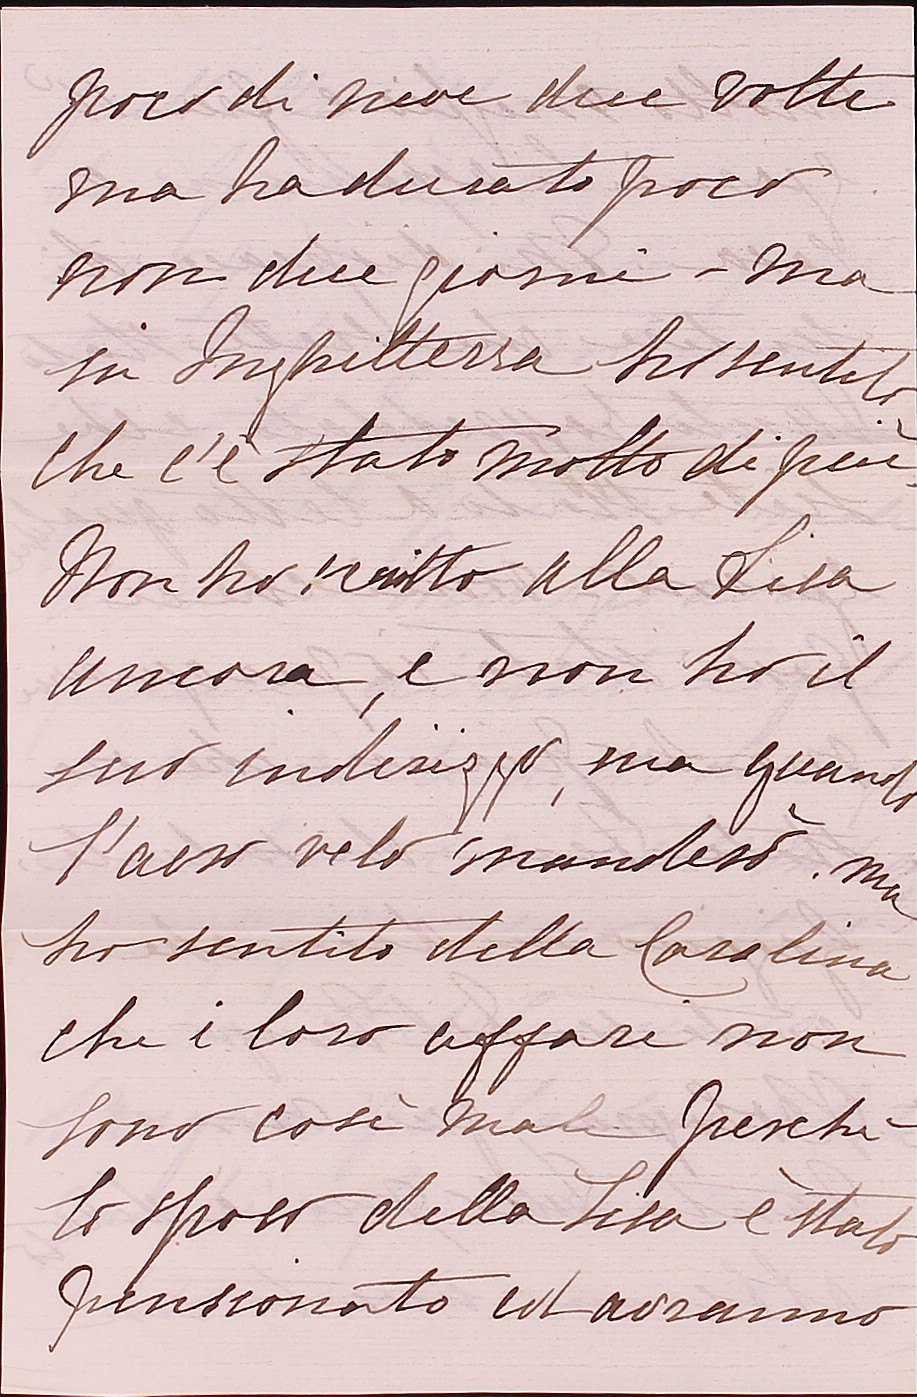 poco di neve due volte
ma ha durato poco
non due giorni - ma
in Inghilterra ho sentito
che c'è stato molto di più.
Non ho scritto alla Lisa
ancora, e non ho il
suo indirizzo, ma quando
l'avrò velo manderò. ma
ho sentito della Carolina
che i loro affari non
sono così male perchè
lo sposo della Lisa è stato
pensionato ed avranno